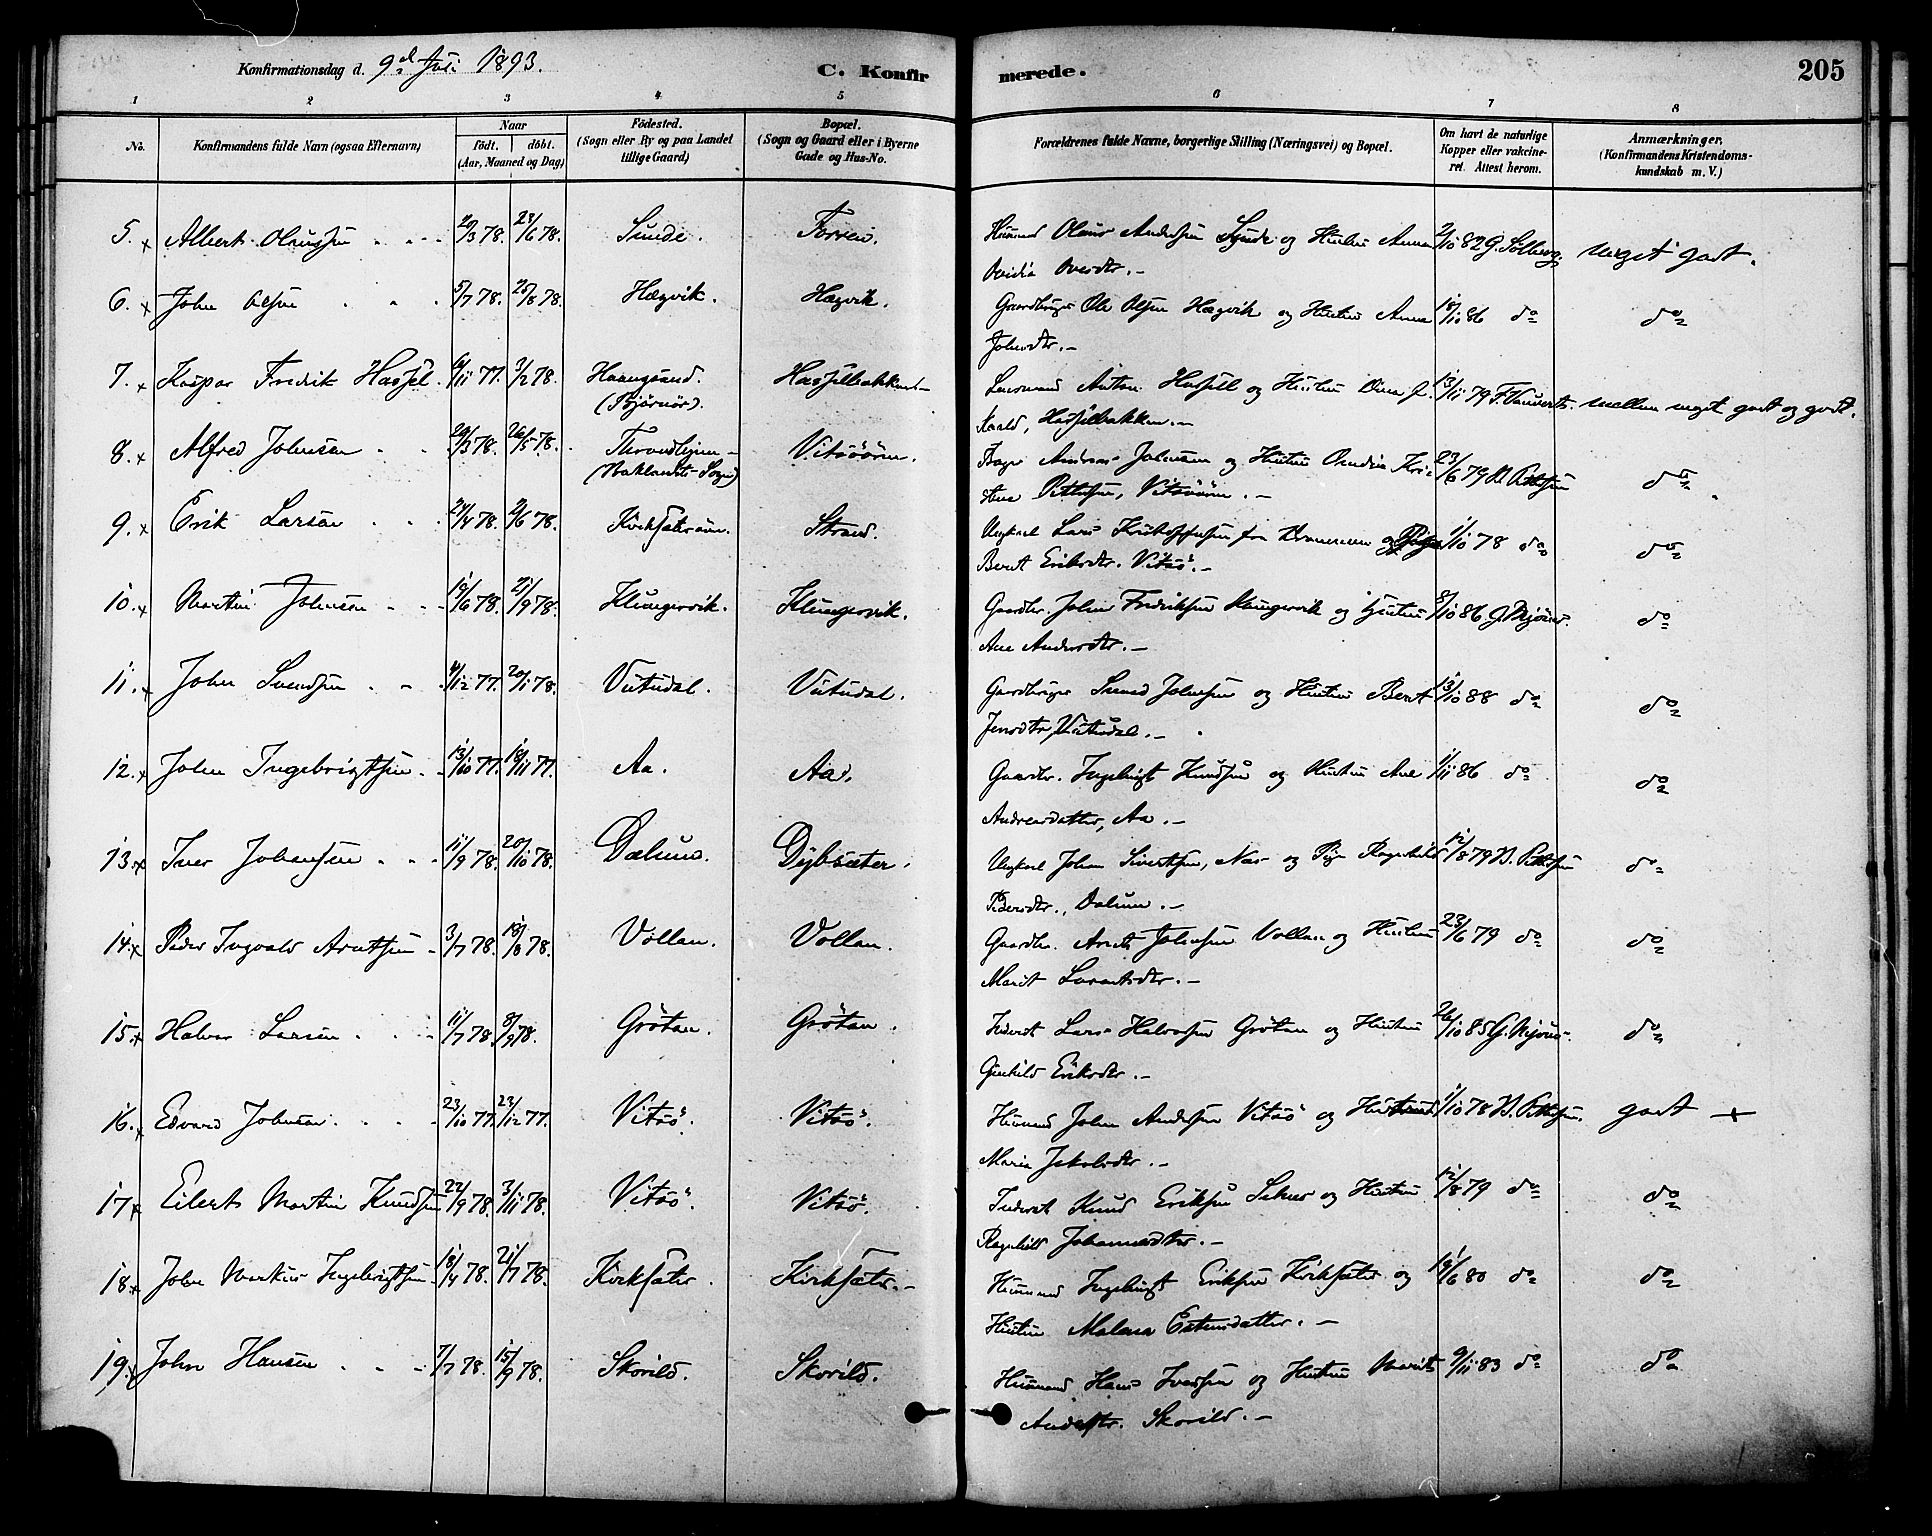 Konfirmationsdag d. 9d Juli 1893.
C. Konfirmerede.
205
1 2 3 4 5 6 7 8
No.
Konfirmandens fulde Navn (ogsaa Efternavn)
Naar
født. døbt.
(Aar, Maaned og Dag)
Fødested.
(Sogn eller By og paa Landet
tillige Gaard)
Bopæl.
(Sogn og Gaard eller i Byerne
Gade og Hus-No.
Forældrenes fulde Navne, borgerlige Stilling (Næringsvei) og Bopæl.
Om havt de naturlige
Kopper eller vakcine-
ret. Attest herom.
Anmærkninger.
(Konfirmandens Kristendoms-
kundskab m. V.)
5. x Albert Olaussen 20/3 78. 23/6 78. Sunde. Husmand Olaus Andersen Sunde og Hustru Anna 2/10 82 G. Solberg meget godt.
6. x John Olsen 5/7 78. 25/8 78. Hægvik. Hægvik. Gaardbruger Ole Olsen Hægvik og Hustru Anna 18/10 86 do do
Johnsdtr. -
7. x Kaspar Fredrik Hassel 3/2 78. Lensmand Anton Hassel og Hustru 13/11 79 mellem meget godt og godt.
(Bjørnør).
8. x Alfred Johnsen 26/5 78. Vitsøören. Andreas Johnsen og Hustru 23/6 79 do
(Baklandets Sogn)
Vitsøören. -
9. x Erik Larsen 27/4 78. 2/6 78. Kirksæterøren. Strand. Ungkarl Lars 1/10 78 do do
Beret Eriksdtr. Vitsø. -
10. x Martin Johnsen 16/6 78. 21/9 78. Klungervik. Klungervik. Gaardbr. John Fredriksen Klungervik og Hustru 8/10 86 do
Ane Andersdtr. -
11. x John Svendsen 4/12 77. 20/1 78. Vutudal. Vutudal. Gaardbruger Svend Johnsen og Hustru Berit 13/10 88 do do
Jensdtr, Vutudal. -
12. x John Ingebrigtsen 13/10 77. 18/11 77. Aa. Aa. Gaardbr. Ingebrigt Knudsen og Hustru Ane 1/11 86 do do
Andreasdatter, Aa. -
13. x Iver Johnsen 11/9 78. 20/10 78. Dalum. Dybsæter. Ungkarl John Sivertsen, Nes og Pige Ragnhild 12/8 79 do
Pedersdtr., Dalum. -
14. x Peder Ingvald Arntsen 3/7 78. 18/8 78. Vollan. Vollan. Gaardbr. Arnt Johnsen Vollan og Hustru 23/6 79 do do
Marit Lorentsdtr. -
15. x Halvor Larsen 11/7 78. 8/9 78. Grøtan. Grøtan. Inderst Lars Halvorsen Grøtan og Hustru 26/10 85 do
Gunhild Eriksdtr. -
16. x Edvard Johnsen 23/10 77. 23/12 77. Vitsø. Vitsø. Husmand John Andersen Vitsø og Hustru 1/10 78 godt +
Maria Jakobsdtr. -
17. x Eilert Martin Knudsen 22/9 78. 3/11 78. Vitsø. Vitsø. Inderst Knud Eriksen og Hustru 12/8 79 do do
Ragnhild Johannesdtr. -
18. x John Markus Ingebrigtsen 18/4 78. 21/7 78. Kirksæter. Kirksæter. Husmand Ingebrigt Eriksen Kirksæter og 19/6 80 do do
Hustru Malena Estensdatter. -
19. x John Hansen 7/7 78. 15/9 78. Skorild. Skorild. Husmand Hans Iversen og Hustru Marit 9/11 83 do do
Andersdtr. Skorild. -